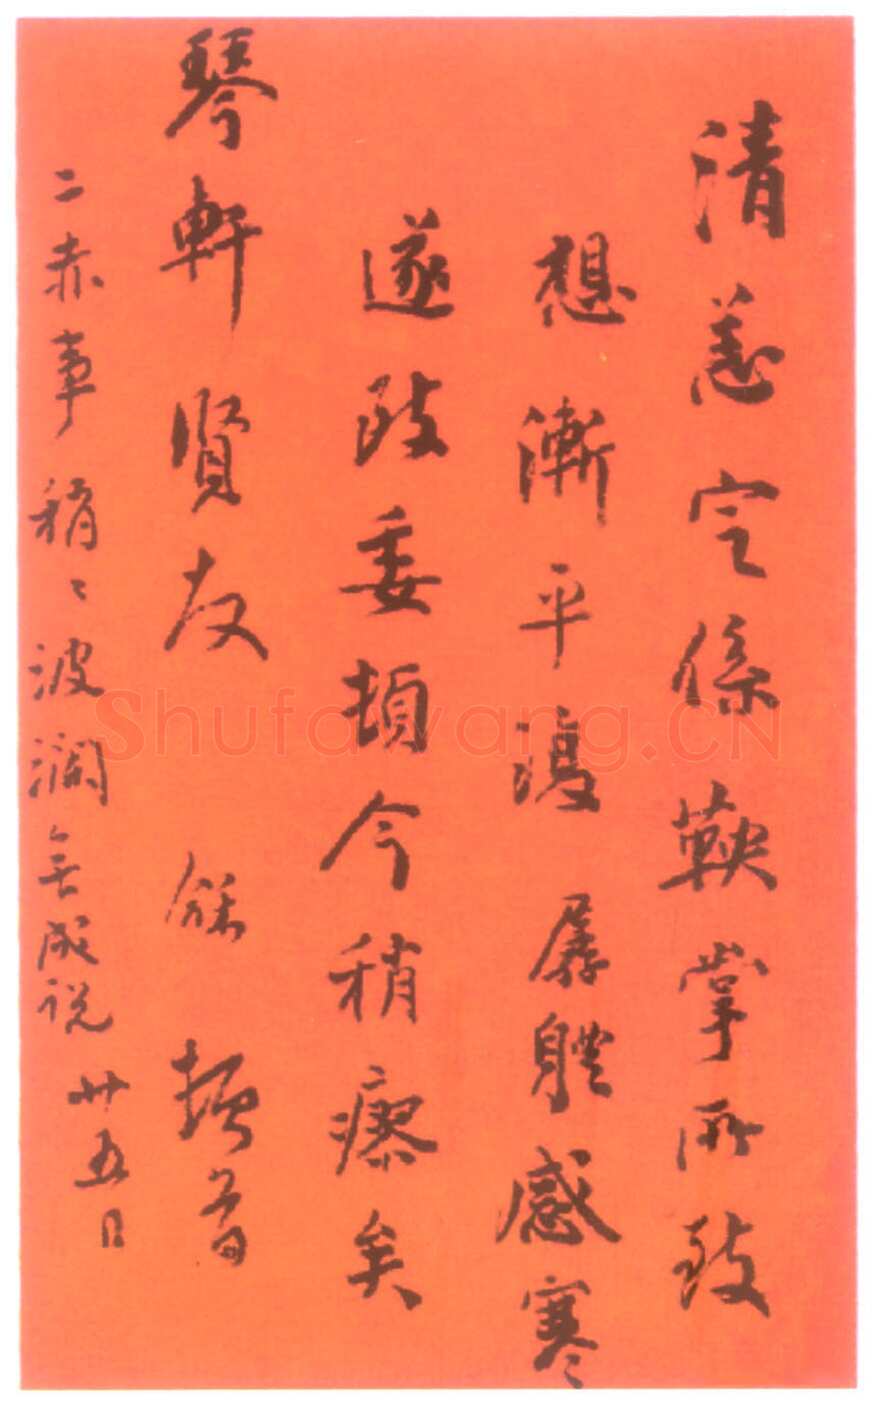 清恙定係鞅掌所致
想漸平復孱體感寒
遂致委頓今稍瘳矣
琴軒賢友 龢頓首
二赤事稍〻波瀾無成說
廿五日
Shufawang.CN